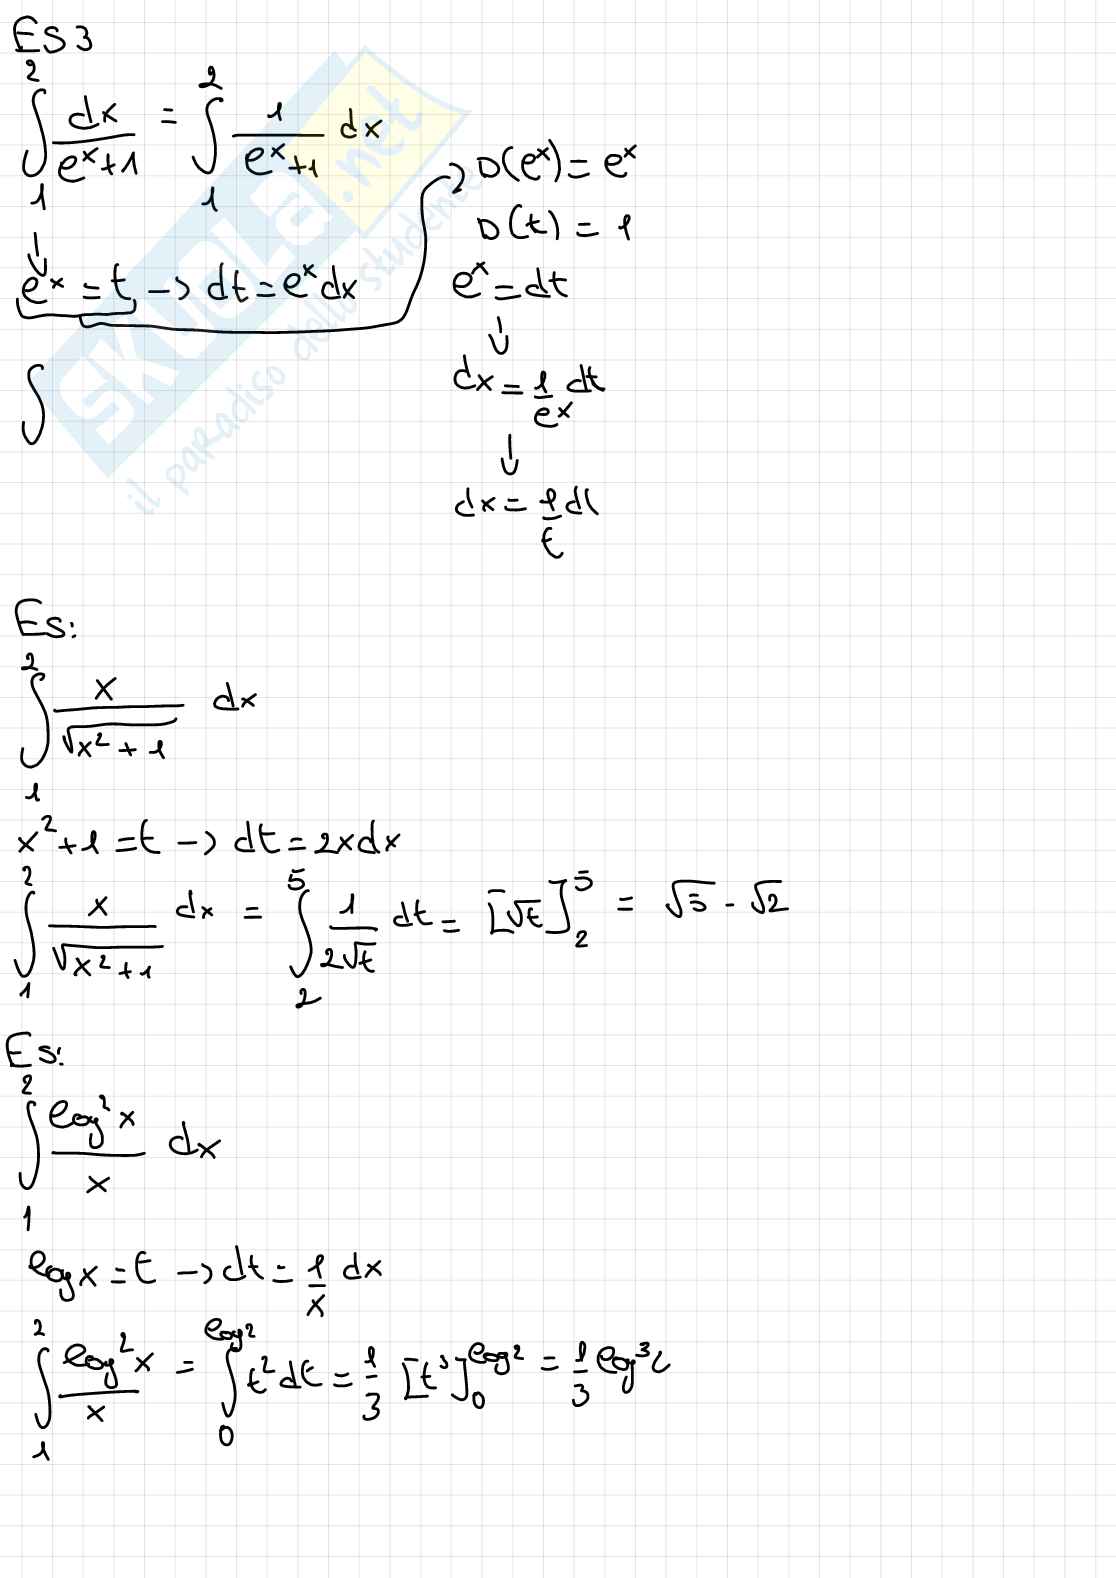 ES 3
∫₁² dx/(eˣ+1) = ∫₁² 1/(eˣ+1) dx
D(eˣ) = eˣ
D(t) = 1
↓
eˣ = t → dt = eˣ dx
eˣ = dt
↓
∫
dx = 1/eˣ dt
↓
dx = 1/t dt
SKUOLA.net
il paradiso dello studente
Es:
∫₁² x/√(x²+1) dx
x²+1 = t → dt = 2x dx
∫₁² x/√(x²+1) dx = ∫₂⁵ 1/(2√t) dt = [√t]₂⁵ = √5 - √2
Es:
∫₁² log²x/x dx
log x = t → dt = 1/x dx
∫₁² log²x/x = ∫₀^log2 t² dt = 1/3 [t³]₀^log2 = 1/3 log³2